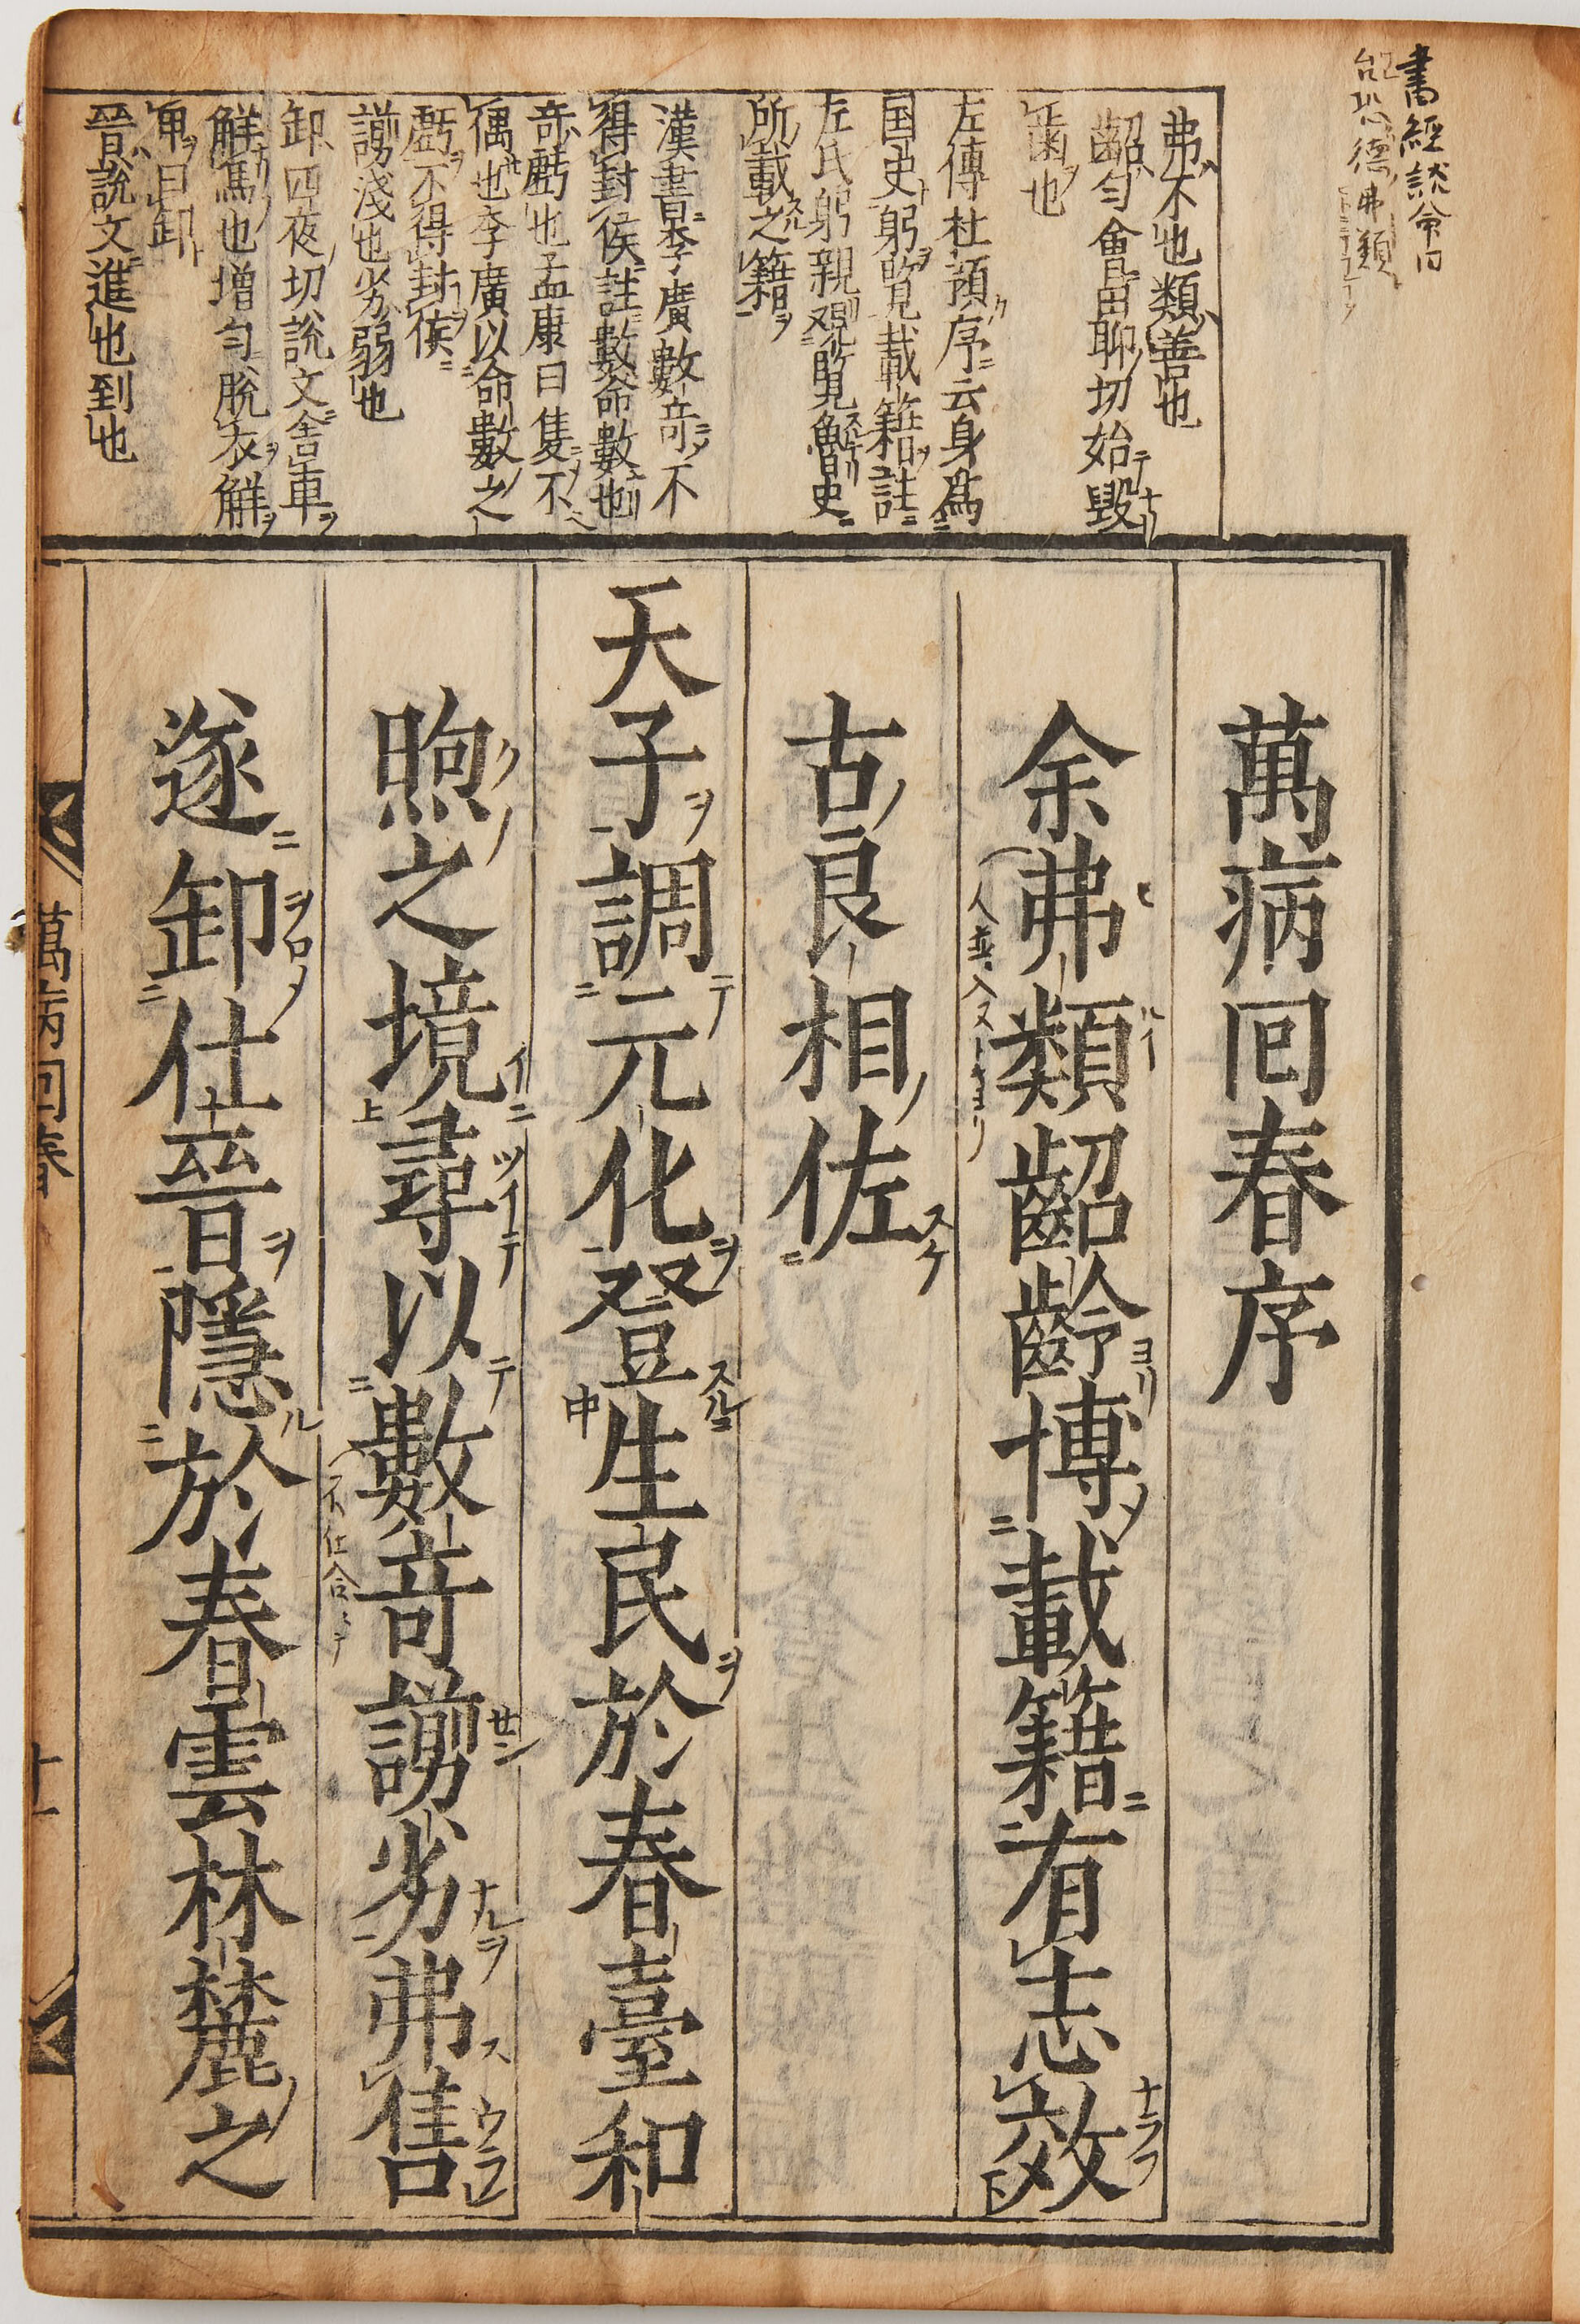 書經說命曰
台恐德弗類
弗不也類善也
齠勻會田聊切始毀
齒也
左傳杜預序云身爲
国史躬覽載籍註
左氏躬親覌覽魯史
所載之籍
漢書李廣數竒不
得封侯註數命數也
竒虧也孟康曰隻不
偶也李廣以命數之
虧不得封侯
謭淺也劣弱也
卸四夜切說文舎車
觧馬也増勻脫衣觧
甲曰卸
晉說文進也到也
萬病囘春序
余弗類齠齡博載籍有志效
古良相佐
天子調元化登生民於春臺和
煦之境尋以數竒謭劣弗售
遂卸仕晉隱於春雲林麓之
萬病回春
十一